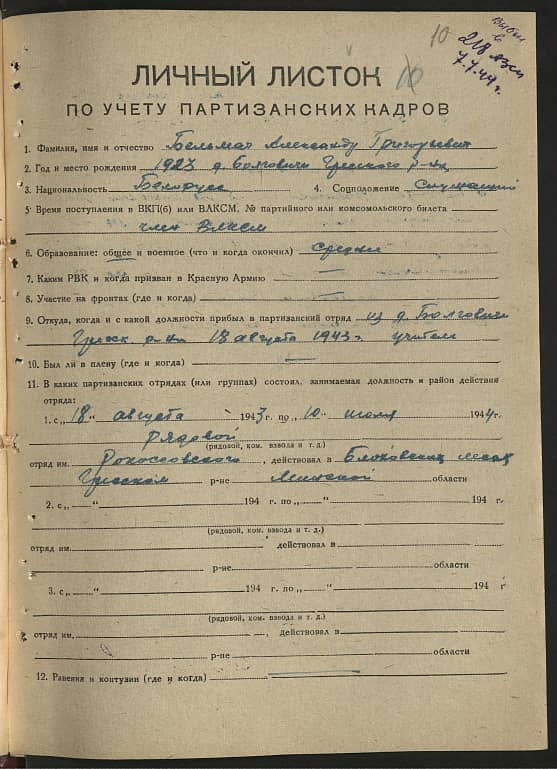 10
Выбыл
в
218 язсп
7.7.44 г.
ЛИЧНЫЙ ЛИСТОК
10
ПО УЧЕТУ ПАРТИЗАНСКИХ КАДРОВ
1. Фамилия, имя и отчество Бельмач Александр Григорьевич
2. Год и место рождения 1923 д. Болговичи Гресского р-на
3. Национальность Белорусс 4. Соцположение Служащий
5 Время поступления в ВКП(б) или ВЛКСМ, № партийного или комсомольского билета
член ВЛКСМ
6. Образование: общее и военное (что и когда окончил) средн
7. Каким РВК и когда призван в Красную Армию —
8. Участие на фронтах (где и когда) —
9. Откуда, когда и с какой должности прибыл в партизанский отряд из д. Болговичи
Гресск р-на 18 августа 1943 г. учитель
10. Был ли в плену (где и когда) —
11. В каких партизанских отрядах (или группах) состоял, занимаемая должность и район действия
отряда:
1. с „18" августа 1943 г. по „10" июля 1944 г.
рядовой
(рядовой, ком. взвода и т. д.)
отряд им. Рокоссовского, действовал в лесах
Гресском р-не Минской области
2. с „ " 194 г. по „ " 194 г.
(рядовой, ком. взвода и т. д.)
отряд им. действовал в
р-не области
3. с „ " 194 г. по „ " 194 г
(рядовой, ком. взвода и т. д.)
отряд им. , действовал в
р-не области
12. Ранения и контузии (где и когда) —